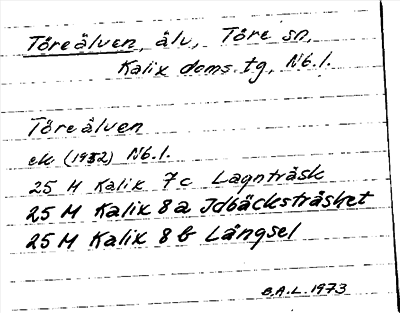 Töreälven, älv, Töre sn,
Kalix doms. tg, Nb. l.
Töreälven
ek (1952) Nb. l.
25 M Kalix 7c Lagnträsk
25 M Kalix 8a Idbäcksträsket
25 M Kalix 8b Långsel
B.A.L. 1973